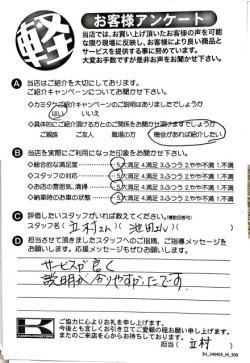 軽 お客様アンケート
当店では、お買い上げ頂いたお客様の声を可能
な限り現場に反映し、お客様により良い商品と
サービスを提供する事に努めています。
大変お手数ですが是非お声をお聞かせ下さい。
Ⓐ 当店はご紹介を大切にしております。
ご紹介キャンペーンについてお聞かせ下さい。
◇カミタケご紹介キャンペーンのご説明はありましたでしょうか
はい いいえ
◇具体的にご紹介頂ける方とのご関係をお聞かせ頂けますでしょうか
ご親族 ご友人 職場の方 機会があれば紹介したい
Ⓑ 当店を実際にご利用になった印象をお聞かせ下さい。
◇総合的な満足度 5.大満足 4.満足 3.ふつう 2.やや不満 1.不満
◇スタッフの対応 5.大満足 4.満足 3.ふつう 2.やや不満 1.不満
◇お店の雰囲気、清掃 5.大満足 4.満足 3.ふつう 2.やや不満 1.不満
◇納車時のお車の状態 5.大満足 4.満足 3.ふつう 2.やや不満 1.不満
Ⓒ 評価したいスタッフがいれば教えてください。(複数回答可)
スタッフ名( 立村さん )( 池田さん )
Ⓓ 担当させて頂きましたスタッフへのご指摘、ご指導メッセージを
お願いします。応援メッセージもぜひお願いします。
サービスが良く
説明が分りやすかったです。
ご協力に心よりお礼を申し上げます。
今後とも宜しくお引き立てご愛顧の程お願い申し上げます。
またのご来店を心からお待ちしております。
担当( 立村 )